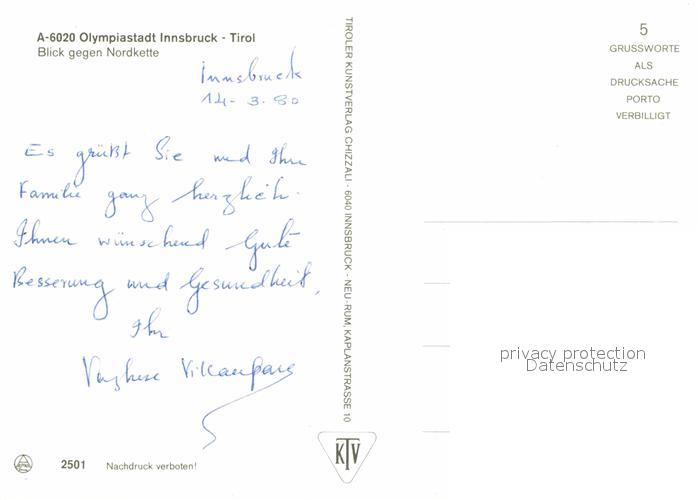 A-6020 Olympiastadt Innsbruck - Tirol
Blick gegen Nordkette
Innsbruck
14-3.80
Es grüßt Sie und Ihre
Familie ganz herzlich.
Ihnen wünschend Gute
Besserung und Gesundheit,
Ihr
TIROLER KUNSTVERLAG CHIZZALI · 6040 INNSBRUCK - NEU-RUM, KAPLANSTRASSE 10
KTV
5
GRUSSWORTE
ALS
DRUCKSACHE
PORTO
VERBILLIGT
privacy protection
Datenschutz
2501 Nachdruck verboten!